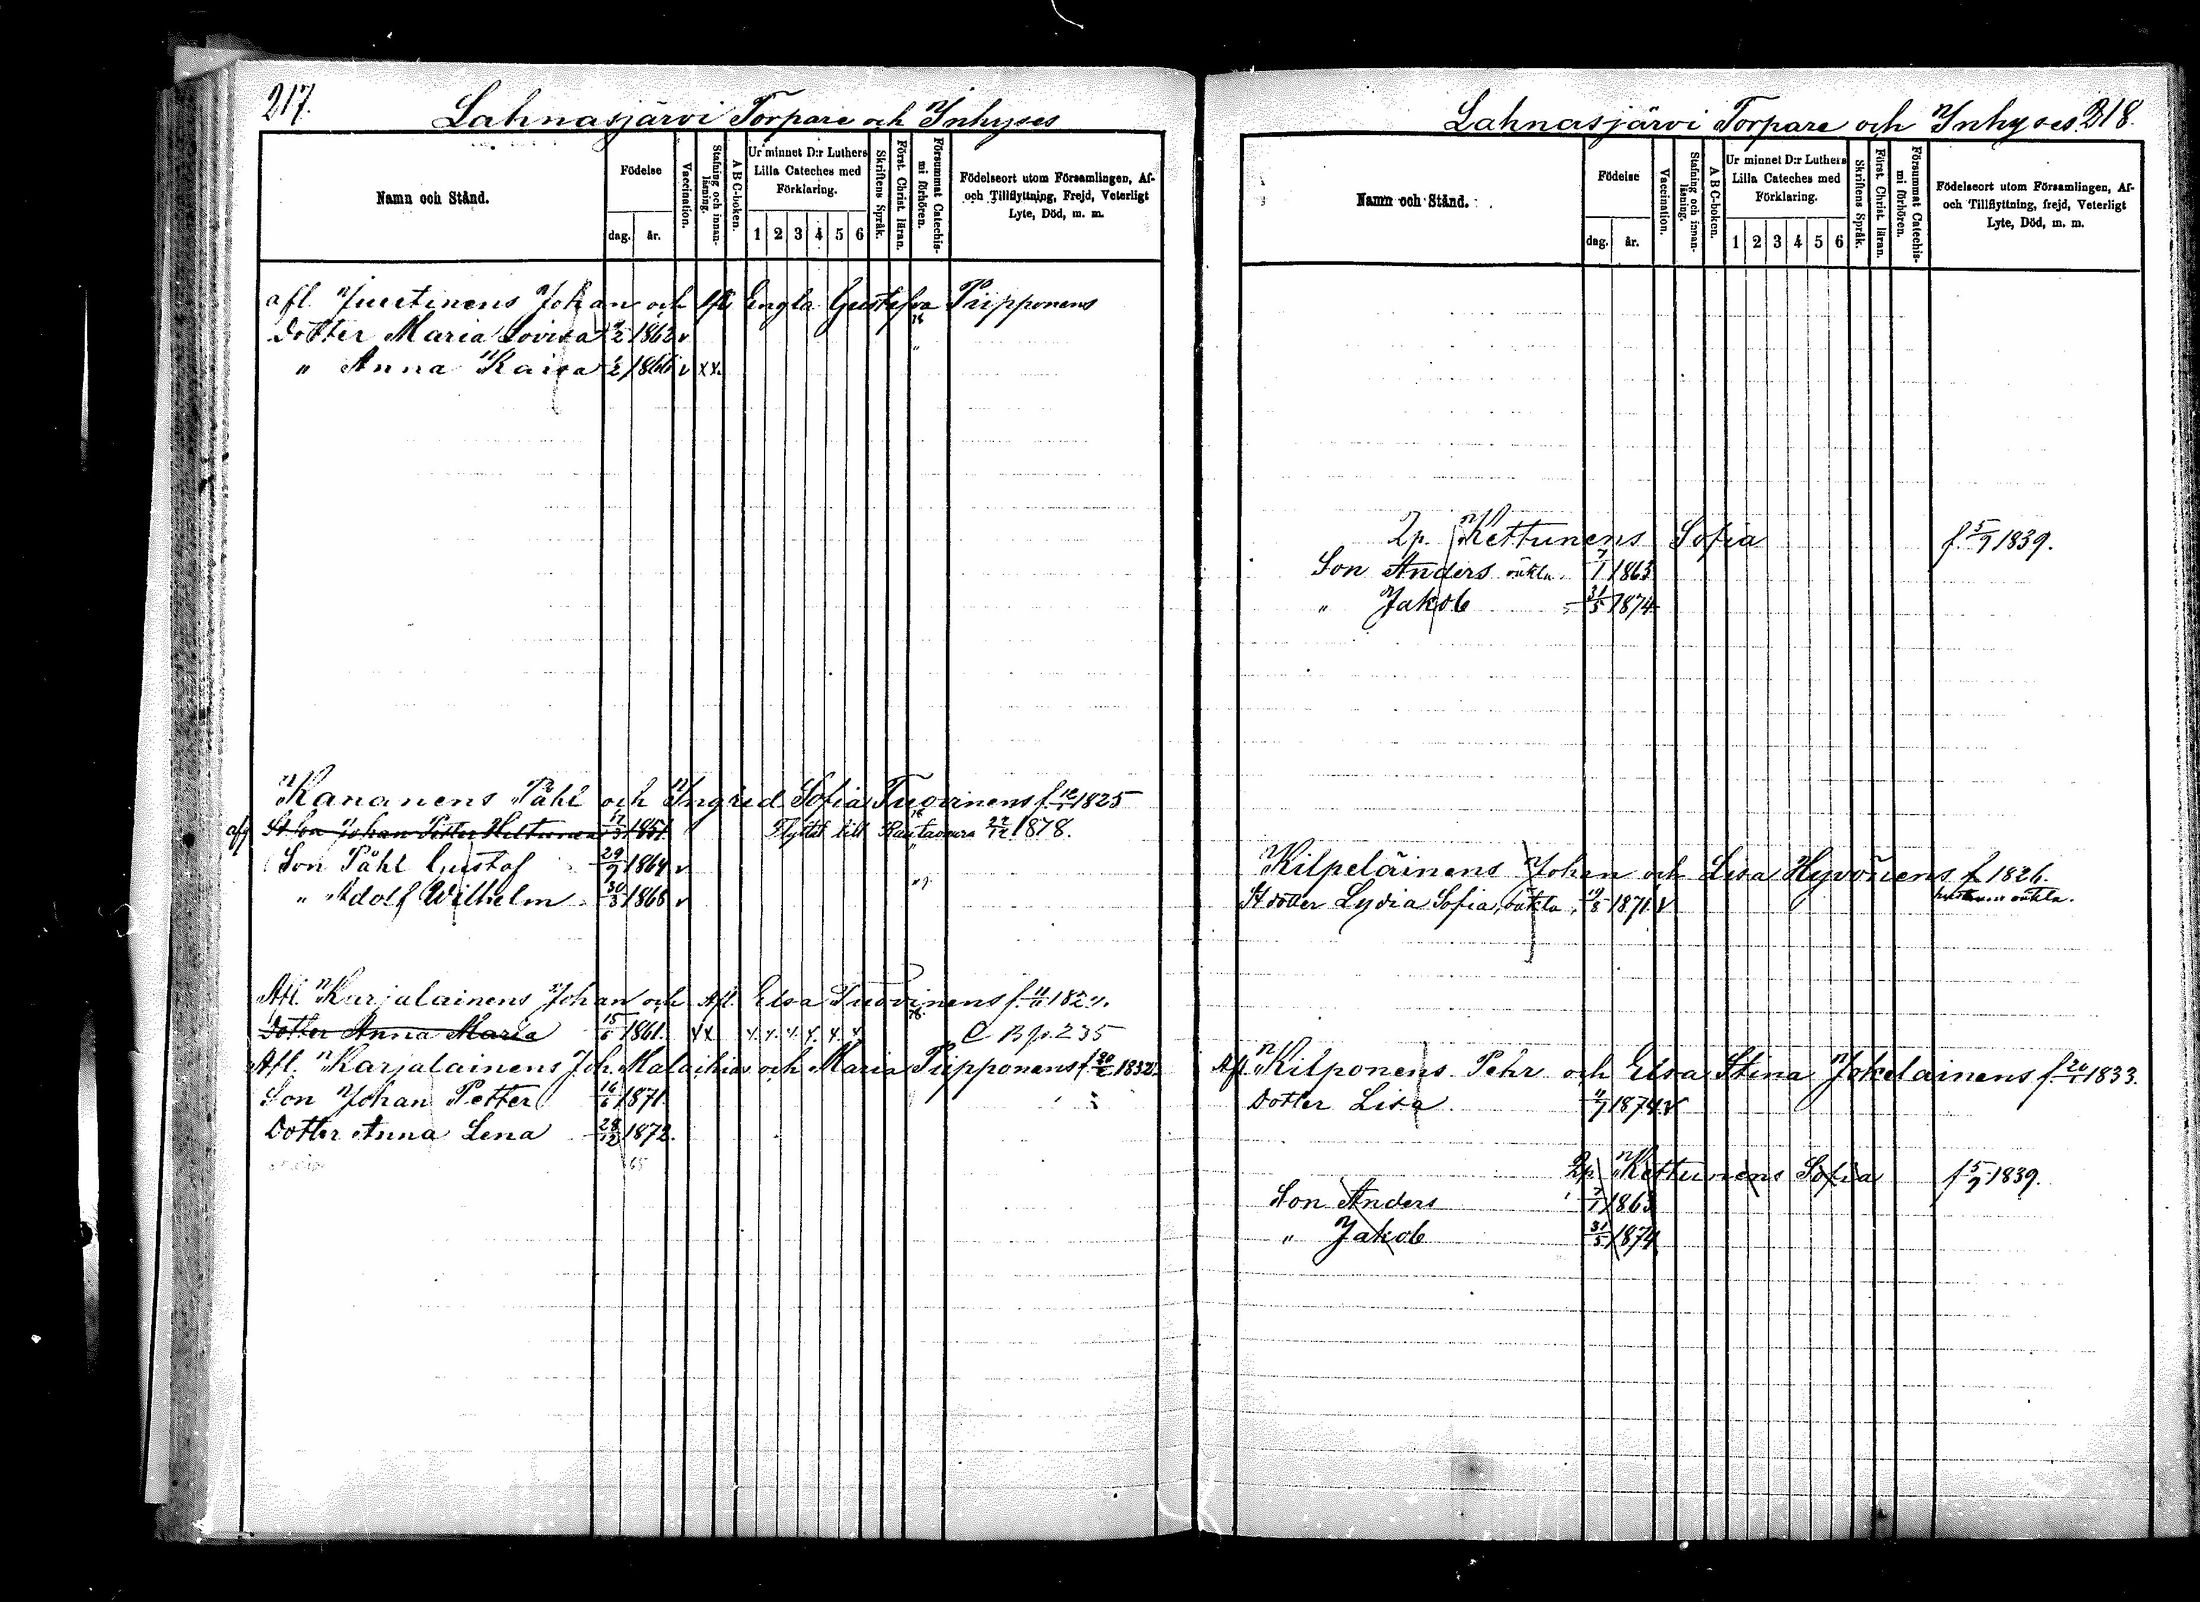 217.
Lahnasjärvi Torpare och Inhyses
Namn och Stånd.
Födelse
dag.
år.
Vaccination.
Stafning och innanläsning.
A B C-boken.
Ur minnet D:r Luthers Lilla Cateches med Förklaring.
1 2 3 4 5 6
Skriftens Språk.
Först. Christ. läran.
Försummat Catechismi förhören.
Födelseort utom Församlingen, Af- och Tillflyttning, Frejd, Veterligt Lyte, Död, m. m.
afl. Juutinens Johan och Afl. Engla Gustafva Piipponens
Dotter Maria Lovisa 1863 v
" Anna Kaisa 1866 v x x.
Kananens Påhl och Ingrid Sofia Tuovinens f. 1825
afg St. Son Johan Petter Hiltunen 1851. Flyttat till 22/12 1878.
Son Påhl Gustaf 29/9 1864 v
" Adolf Wilhelm 30/3 1868 v
Afl. Karjalainens Johan och Afl. Elsa Tuovinens f.
Dotter Anna Maria 15/6 1861. x x x x x x x x C B p. 235
Afl. Karjalainens Joh. Malachias och Maria Piipponens f. 20/2 1832.
Son Johan Petter 16/6 1871.
Dotter Anna Lena 28/12 1872.
Lahnasjärvi Torpare och Inhyses 218.
Namn och Stånd.
Födelse
dag.
år.
Vaccination.
Stafning och innanläsning.
A B C-boken.
Ur minnet D:r Luthers Lilla Cateches med Förklaring.
1 2 3 4 5 6
Skriftens Språk.
Först. Christ. läran.
Försummat Catechismi förhören.
Födelseort utom Församlingen, Af- och Tillflyttning, frejd, Veterligt Lyte, Död, m. m.
Qp. Kettunens Sofia f. 5/9 1839.
Son Anders oäkta. 7/1 1863
" Jakob " 31/5 1874
Kilpeläinens Johan och Lisa Hyvönens f. 1826.
St dotter Lydia Sofia, oäkta, 19/8 1871. v oäkta.
Afl. Kilponens Pehr och Elsa Stina Jokelainens f. 1833.
Dotter Lisa 1874. v
Qp. Kettunens Sofia f. 5/9 1839.
Son Anders 7/1 1863
" Jakob 31/5 1874